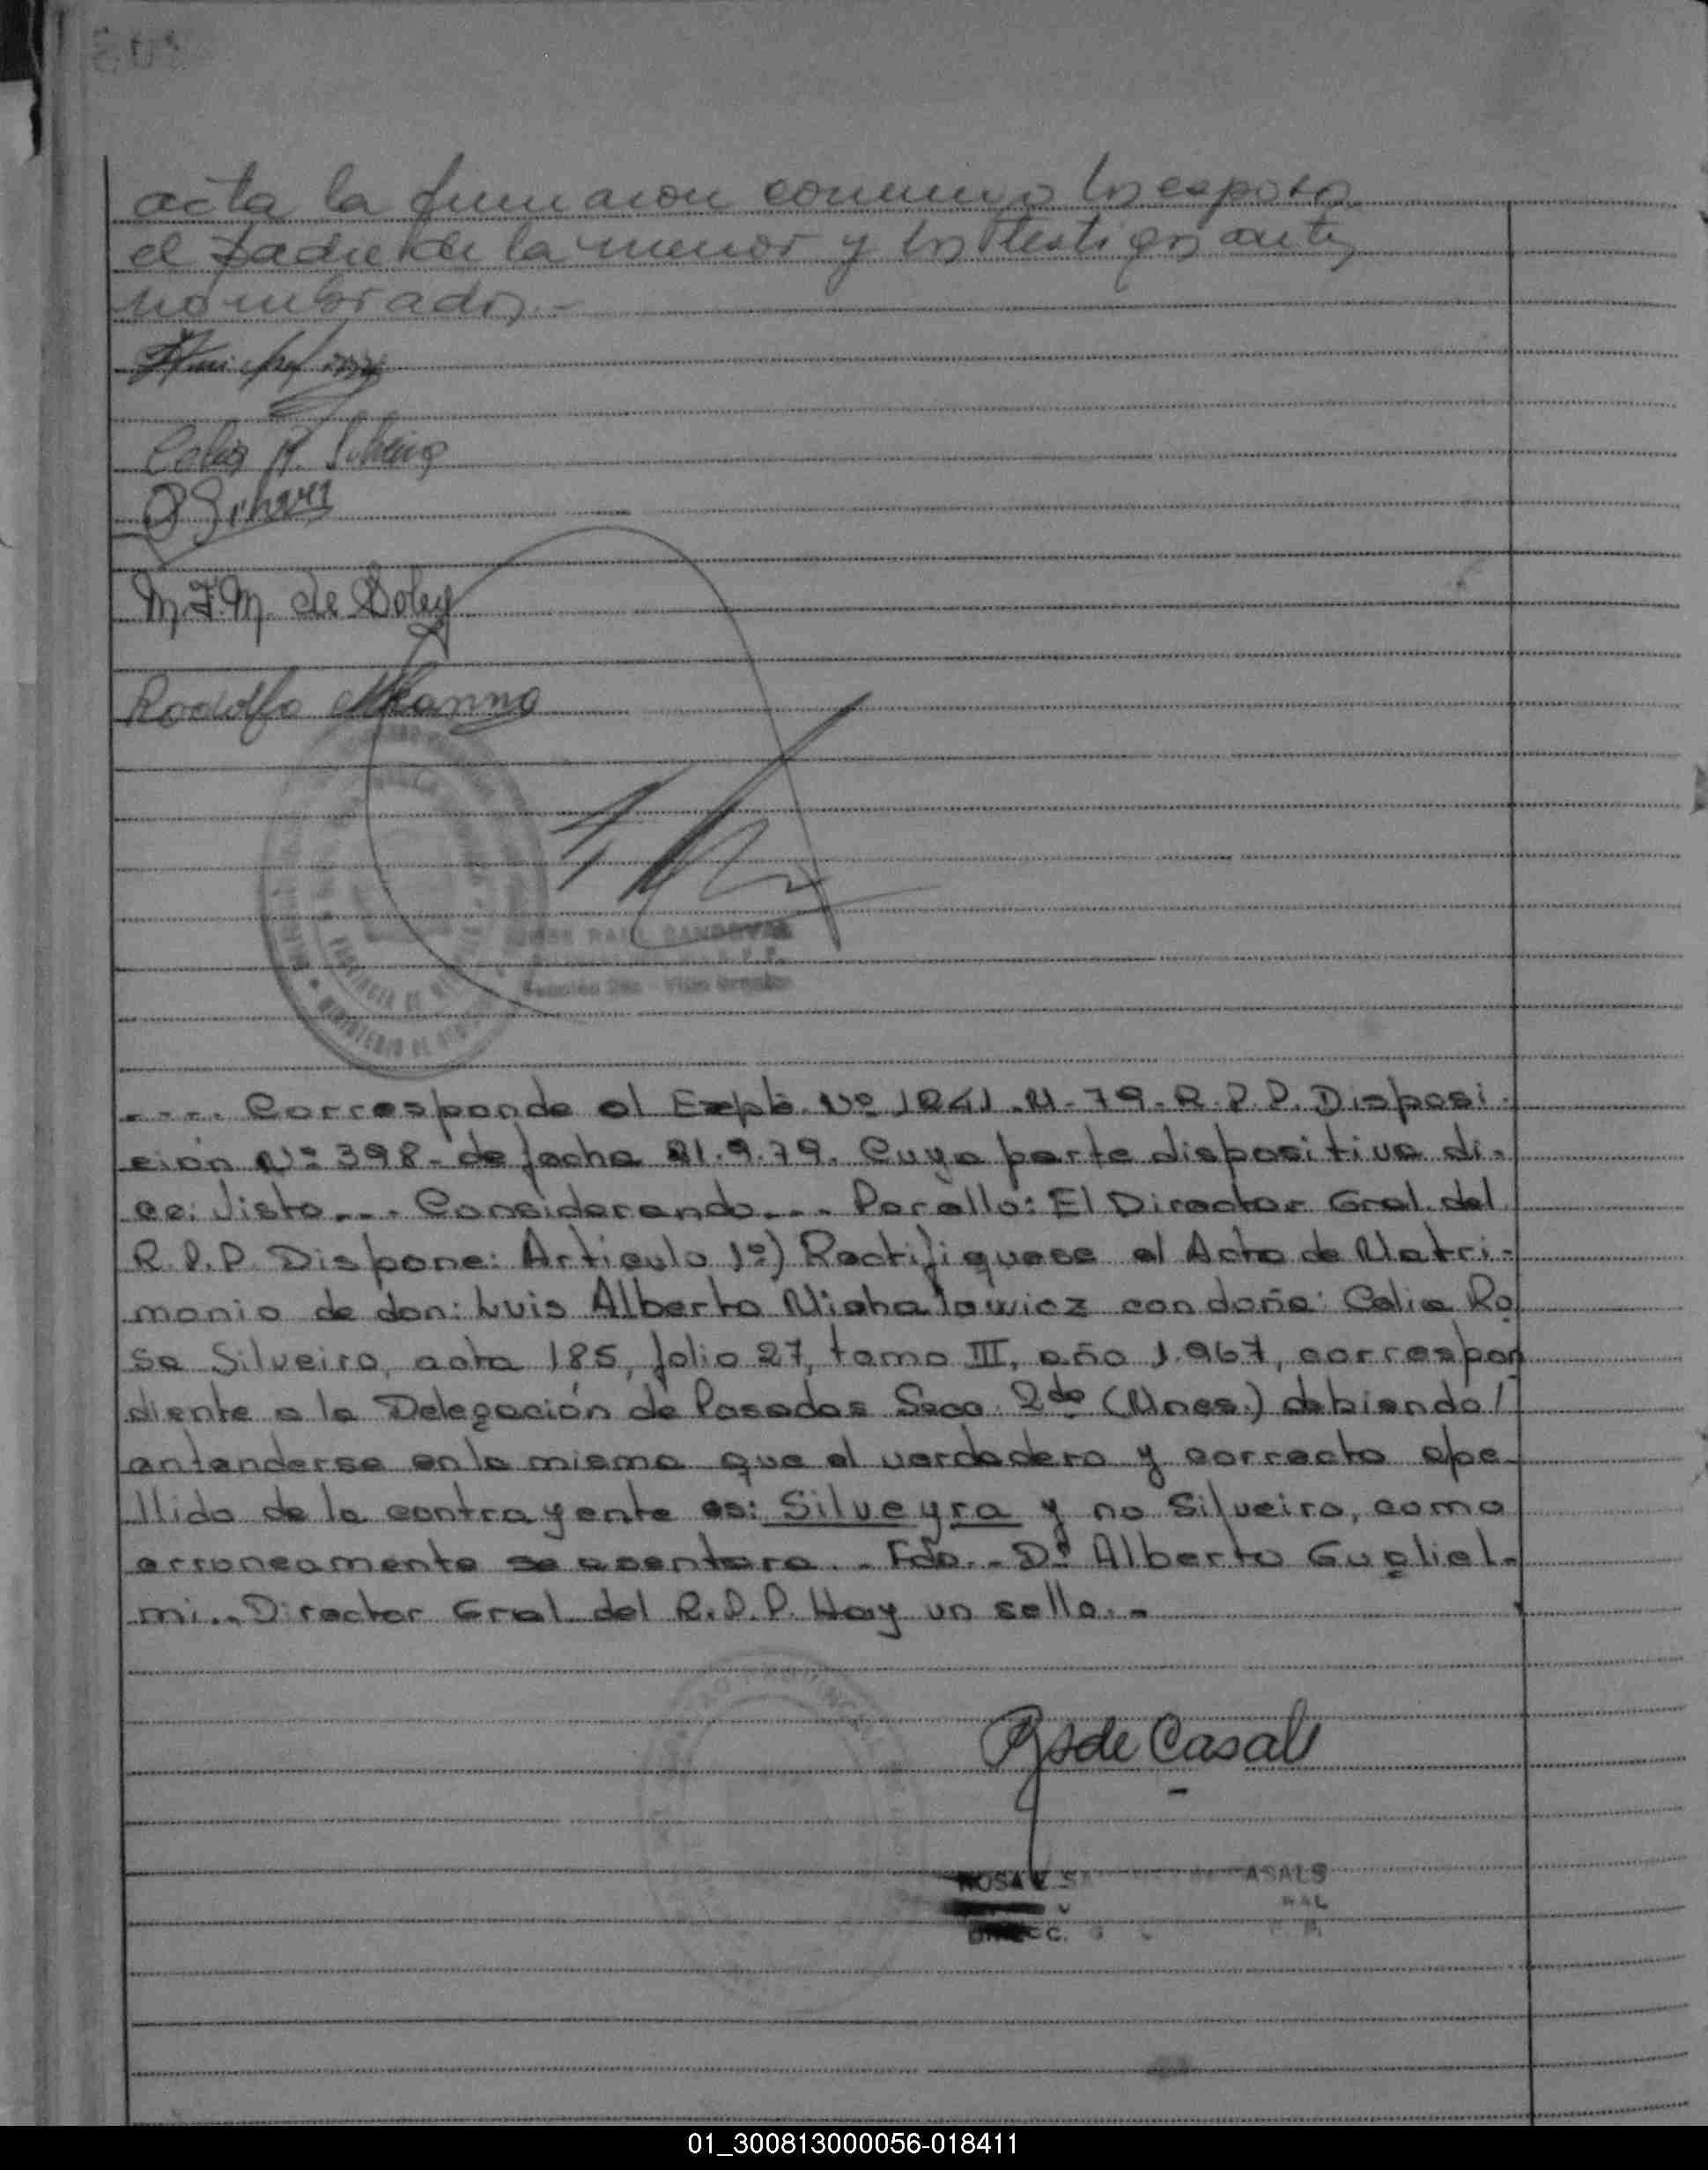 acta la firmaron conmigo los esposos
el padre de la menor y los testigos antes
nombrados.-
Celia R. Silveira
M.F.M. de Doley
Rodolfo
RAUL SANDOVAL
---- Corresponde al Expte. Nº 1841.M-79-R.P.P. Disposi-
ción Nº 398- de fecha 21.9.79. Cuya parte dispositiva di-
ce: Visto--- Considerando--- Por ello: El Director Gral. del
R.P.P. Dispone: Articulo 1º) Rectifiquese el Acta de Matri-
monio de don: Luis Alberto Michalowicz con doña: Celia Ro
sa Silveira, acta 185, folio 27, tomo III, año 1.967, correspon
diente a la Delegación de Posadas Secc. 2da (Mnes.) debiendo/
entenderse en la misma que el verdadero y correcto ape-
llido de la contrayente es: Silveyra y no Silveira, como
erroneamente se asentara.- Fdo.- Dº Alberto Gugliel-
mi.- Director Gral. del R.P.P. Hay un sello.-
de Casals
ROSA
01_300813000056-018411